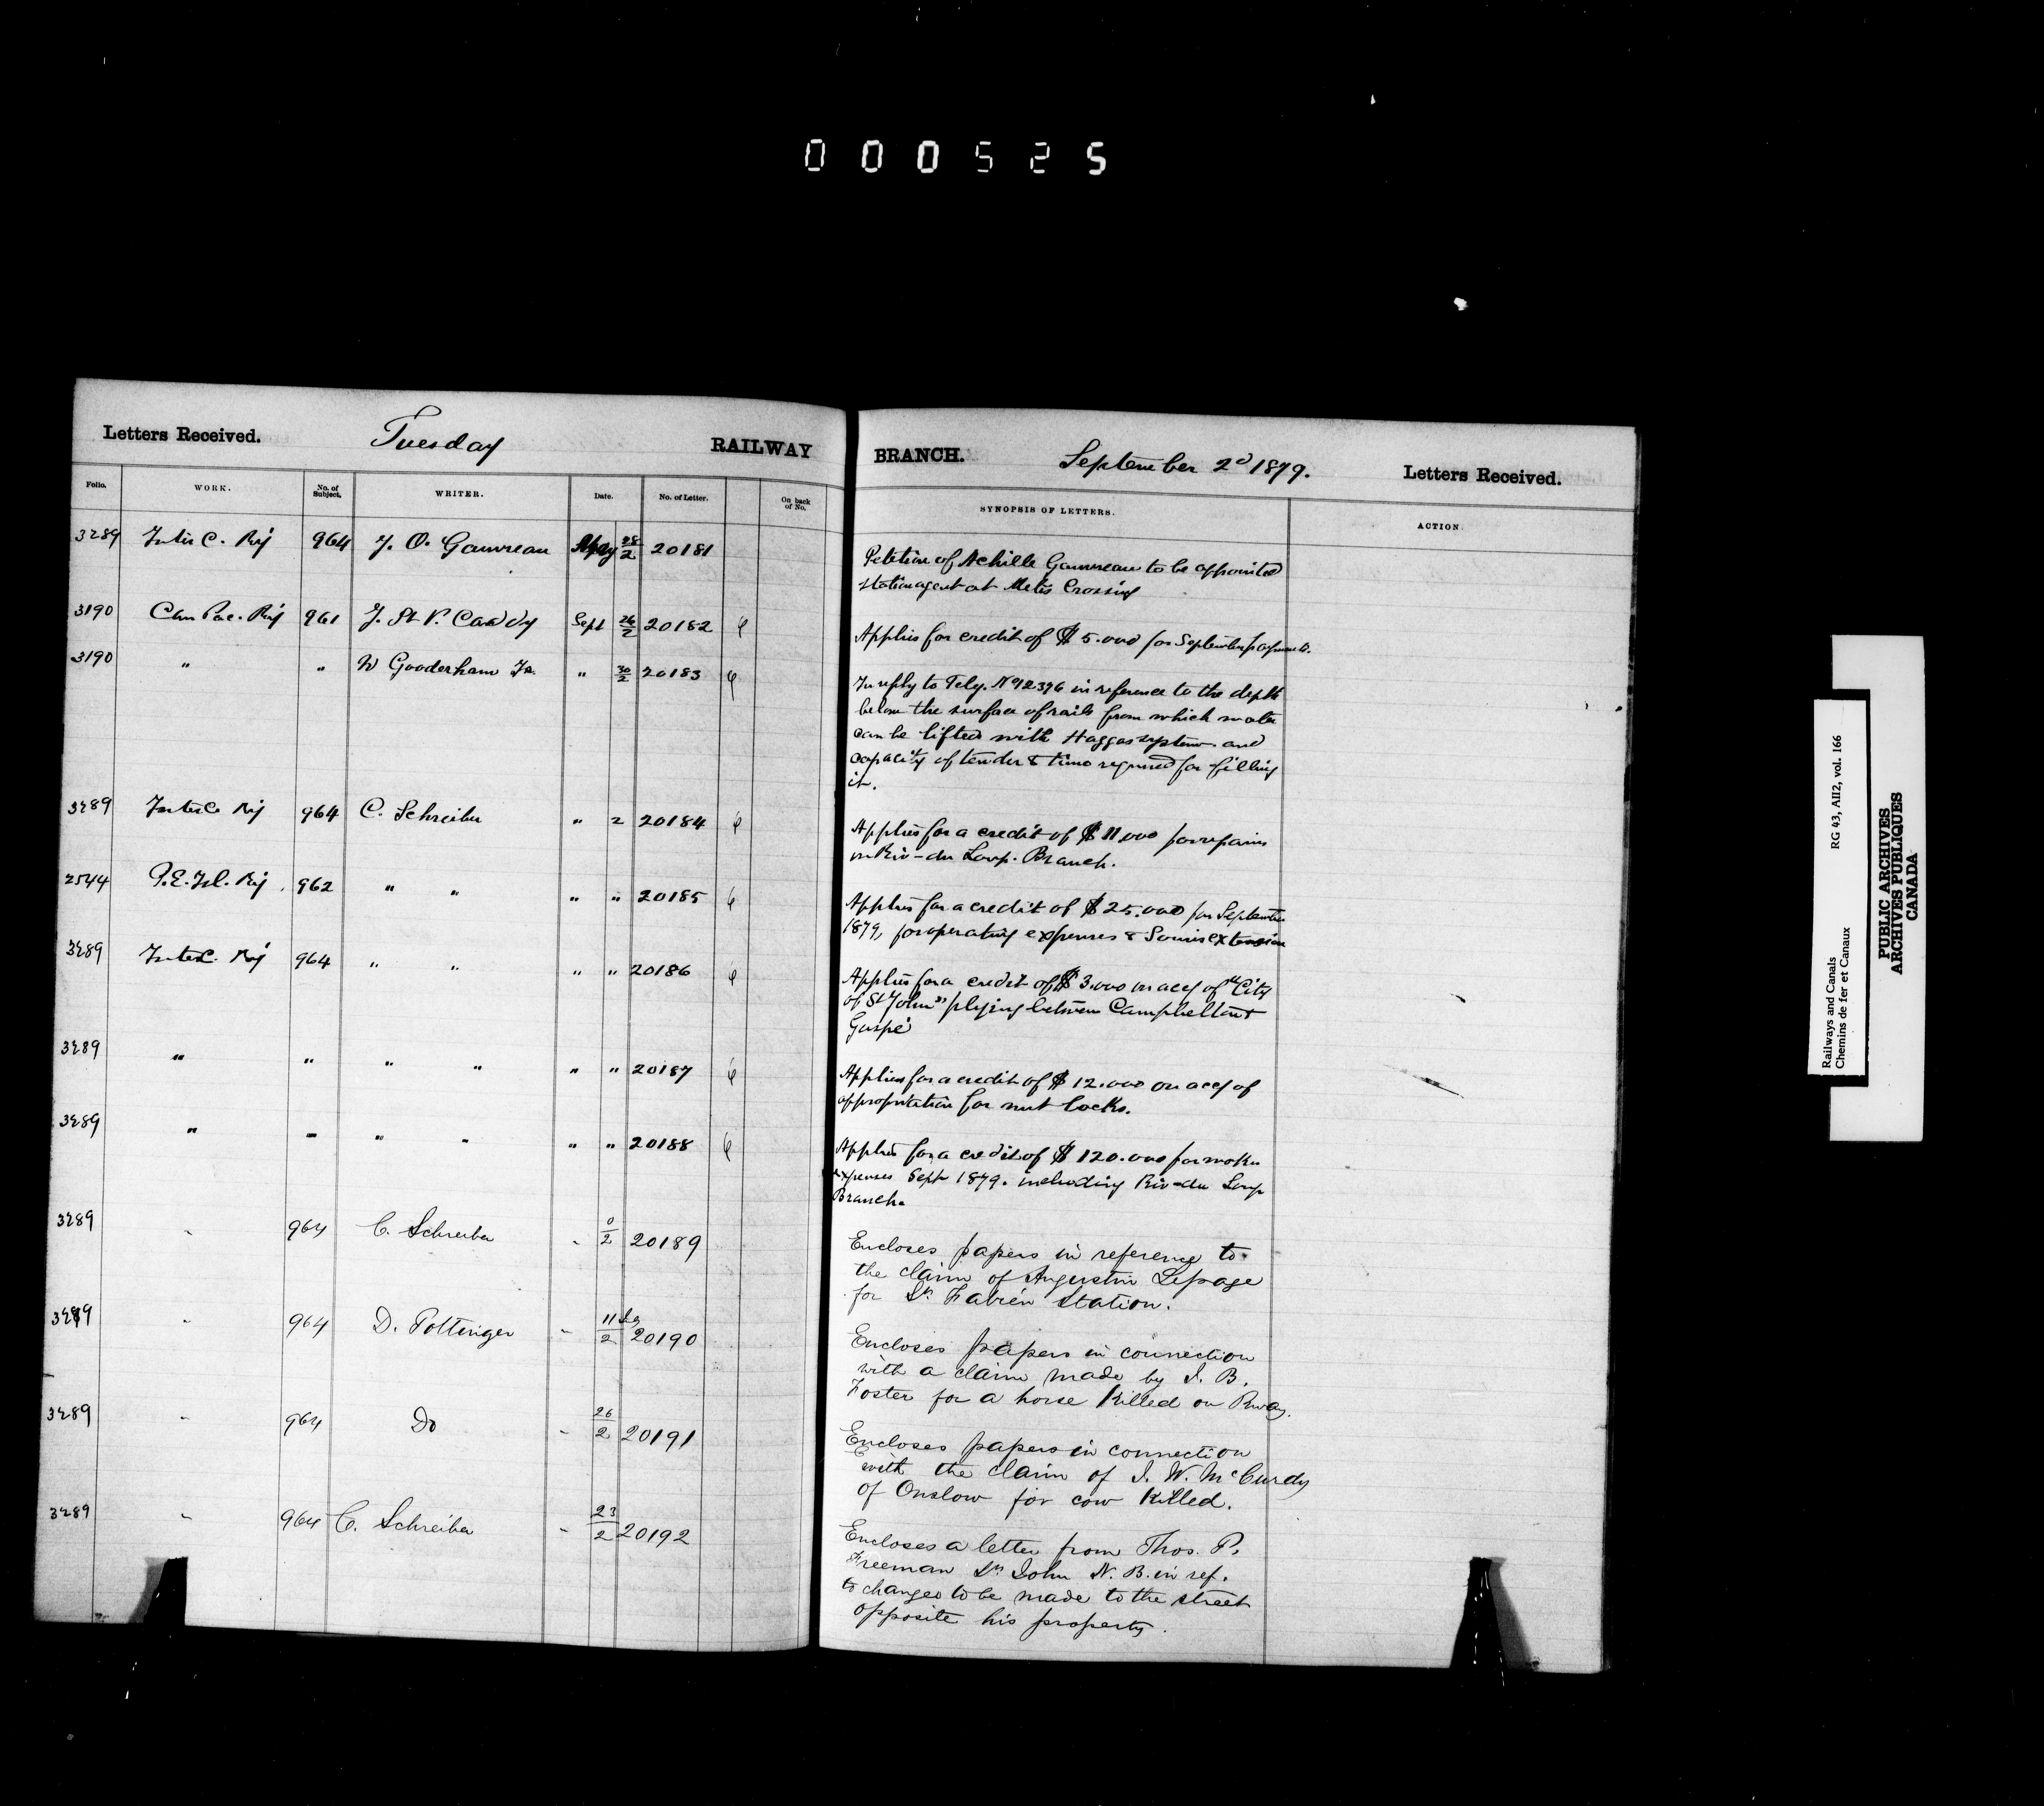 000525
Letters Received. Tuesday RAILWAY BRANCH. September 2d 1879. Letters Received.
Folio. WORK. No. of Subject. WRITER. Date. No. of Letter. On back of No. SYNOPSIS OF LETTERS. ACTION.
3289 Inter C. Ry 964 J. O. Gauvreau 28/2 20181
Petition of Achille Gauvreau to be appointed
station agent at Metis Crossing
3190 Can Pac. Ry 961 J. St V. Caddy Sept 26/2 20182
Applies for credit of $5.000 for September payments.
3190 " " W Gooderham Jr. " 30/2 20183
In reply to Telg. No 92376 in reference to the depth
below the surface of rails from which water
can be lifted with Haggas system and
capacity of tender & time required for filling
it.
3289 Inter C Ry 964 C. Schreiber " 2 20184
Applies for a credit of $11000 for repairs
on Riv-du Loup. Branch.
2544 P.E.Isl. Ry. 962 " " " " 20185
Applies for a credit of $25.000 for September
1879, for operating expenses & Souris extension
3289 Inter C. Ry 964 " " " " 20186
Applies for a credit of $3.000 on acct of "City
of St John" plying between Campbellton &
Gaspé
3289 " " " " " " 20187
Applies for a credit of $12.000 on acct of
appropriation for nut locks.
3289 " " " " " " 20188
Applies for a credit of $120.000 for workg
expenses Sept 1879. including Riv-du Loup
Branch.
3289 " 964 C. Schreiber " 0/2 20189
Encloses papers in reference to
the claim of Augustin Lepage
for St. Fabien Station.
3289 " 964 D. Pottinger " 11/2 20190
Encloses papers in connection
with a claim made by J. B.
Foster for a horse killed on Rway.
3289 " 964 Do " 26/2 20191
Encloses papers in connection
with the claim of J. W. McCurdy
of Onslow for cow killed.
3289 " 964 C. Schreiber " 23/2 20192
Encloses a letter from Thos. P.
Freeman St John N. B. in ref.
to changes to be made to the street
opposite his property.
Railways and Canals RG 43, AII2, vol. 166
Chemins de fer et Canaux
PUBLIC ARCHIVES
ARCHIVES PUBLIQUES
CANADA